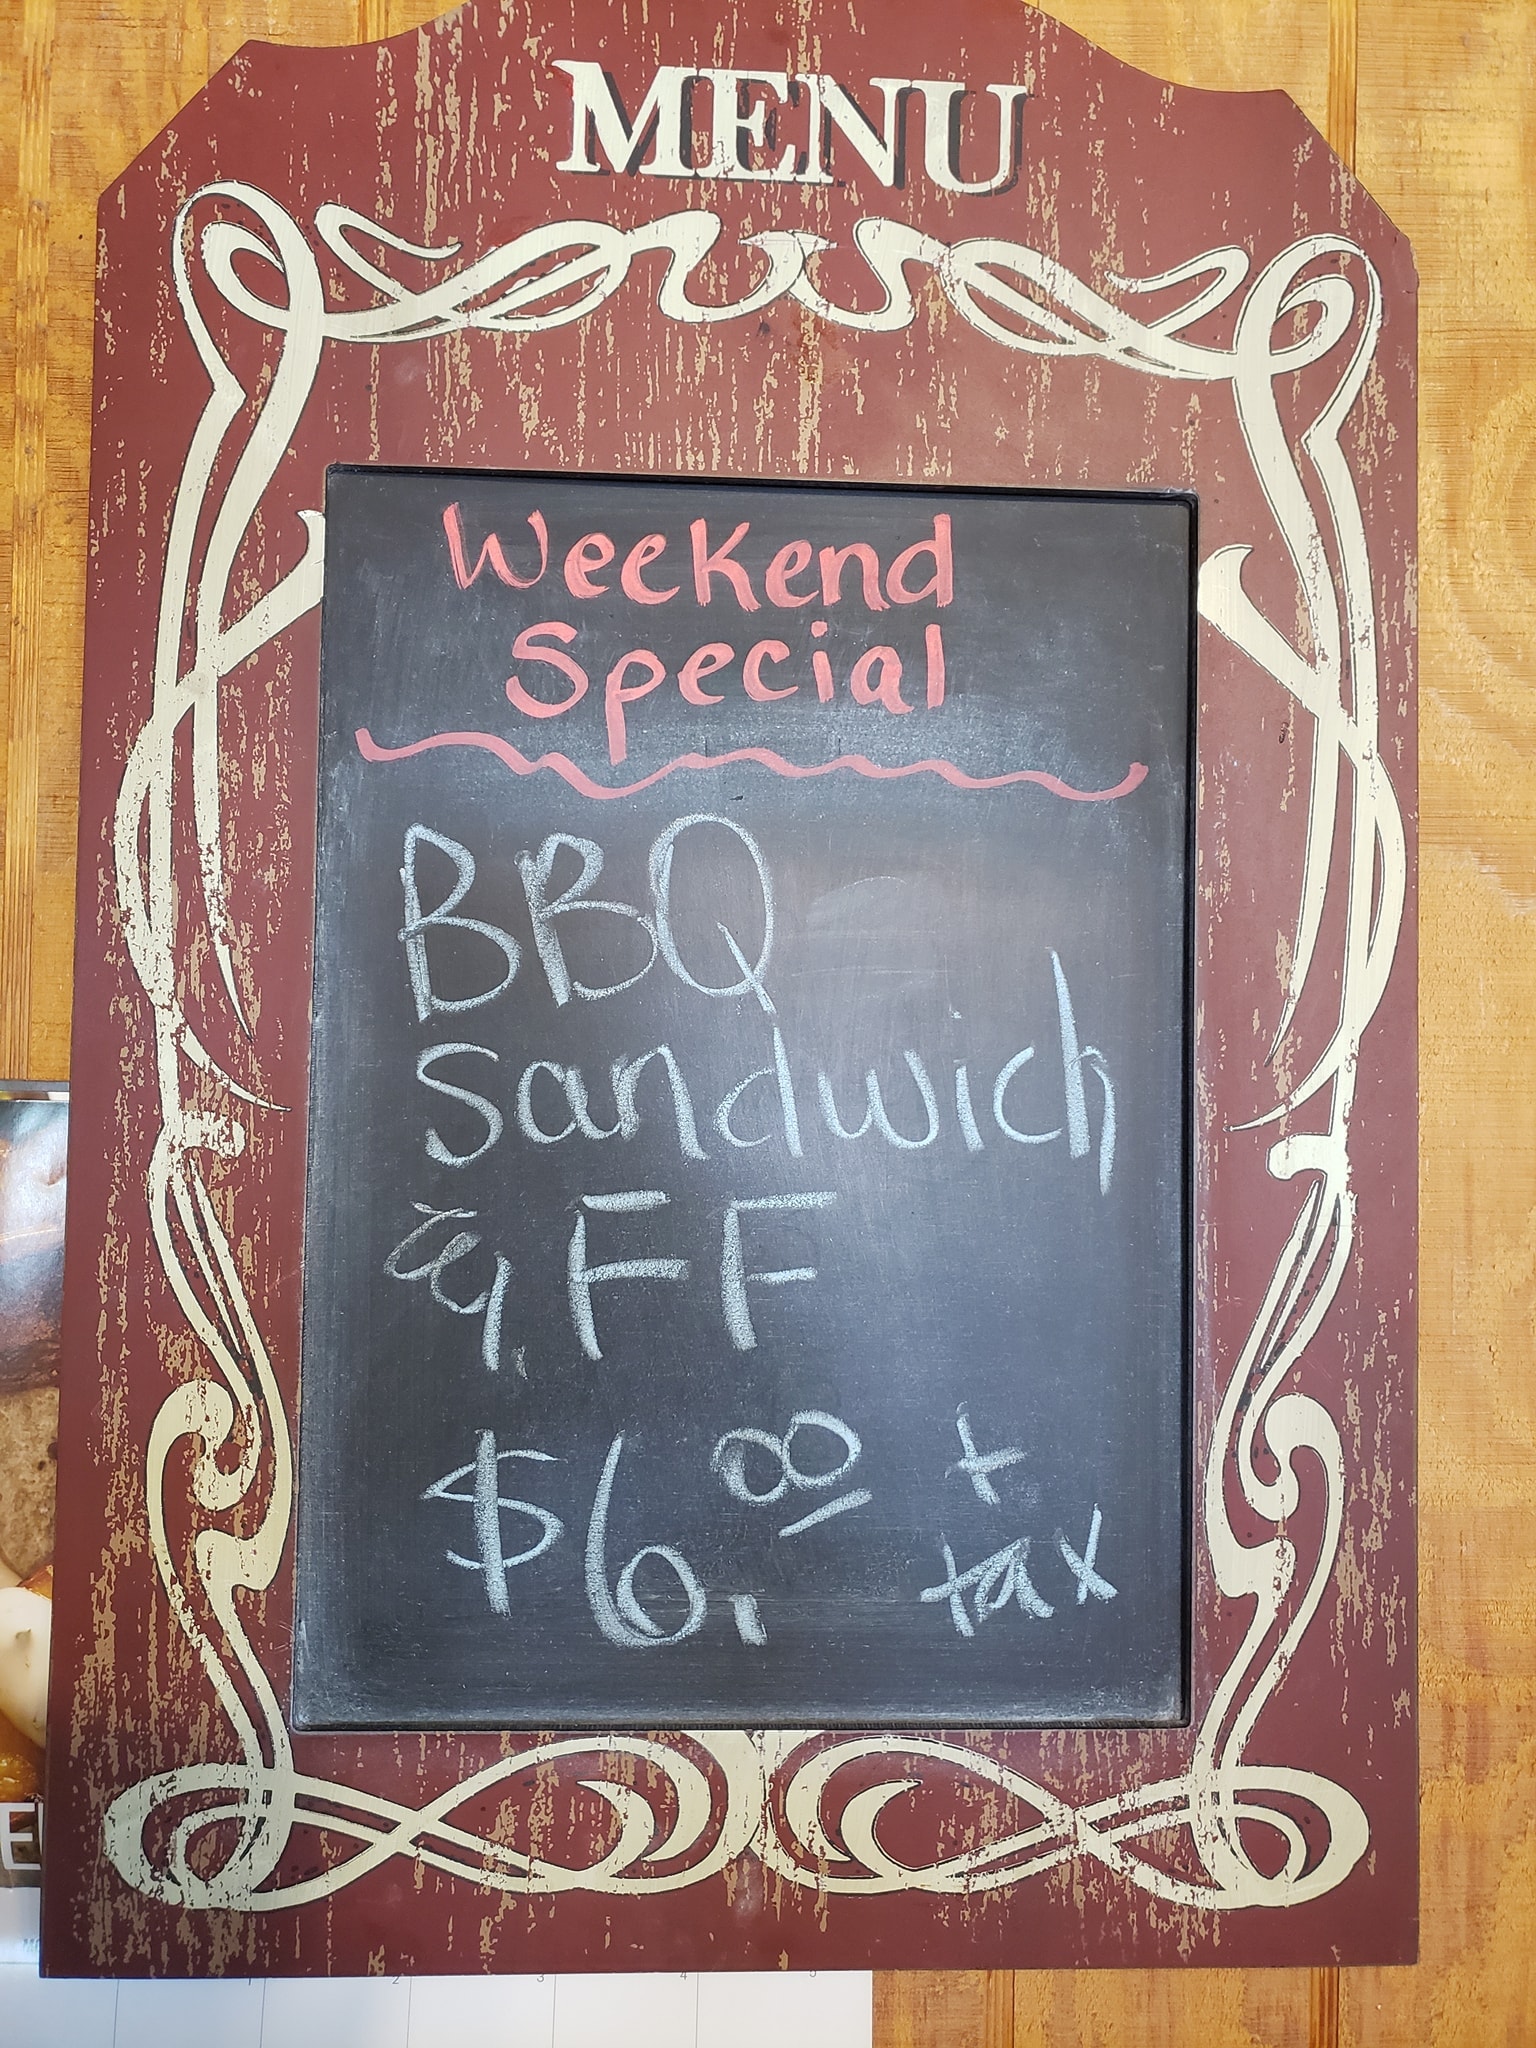 MENU
Weekend
Special
BBQ
Sandwich
& FF
$6.00 +
tax
E
1 2 3 4 5